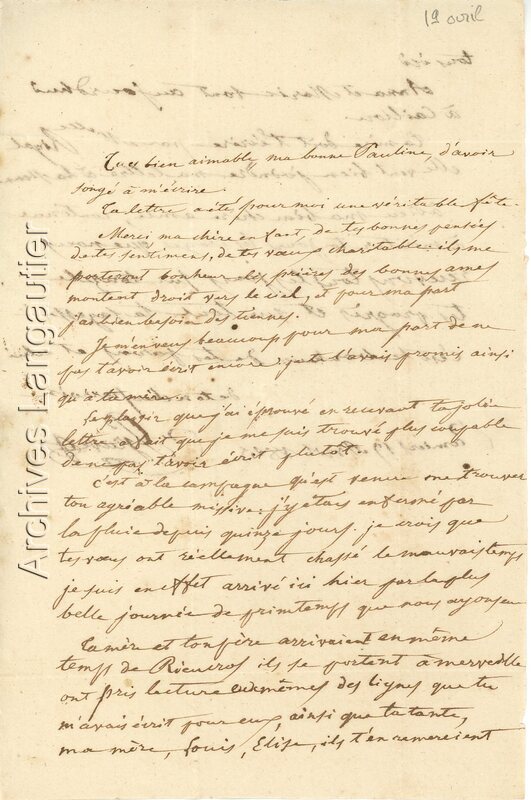 19 avril
Tu es bien aimable, ma bonne Pauline, d'avoir
songé à m'écrire.
Ta lettre a été pour moi une véritable fête.
Merci ma chère enfant, de tes bonnes pensées
de tes sentimens, de tes vœux charitables: ils me
porteront bonheur les prières des bonnes ames
montent droit vers le ciel, et pour ma part
j'ai bien besoin des tiennes.
Je m'en veux beaucoup pour ma part de ne
pas t'avoir écrit encore: je te l'avais promis ainsi
qu'à ta mère.
Le plaisir que j'ai éprouvé en recevant ta jolie
lettre a fait que je me suis trouvé plus coupable
de ne pas t'avoir écrit plutot.
C'est à la campagne qu'est venue me trouver
ton agréable missive: j'y étais enfermé par
la pluie depuis quinze jours. je crois que
tes vœus ont réellement chassé le mauvais temps
je suis en effet arrivé ici hier par la plus
belle journée de primtemps que nous ayons eu
Ta mère et ton père arrivaient en même
temps de Rieucros ils se portent à merveille
ont pris lecture eux mêmes des lignes que tu
m'avais écrit pour eux, ainsi que ta tante,
ma mère, Louis, Elise, ils t'en remercient
Archives Langautier